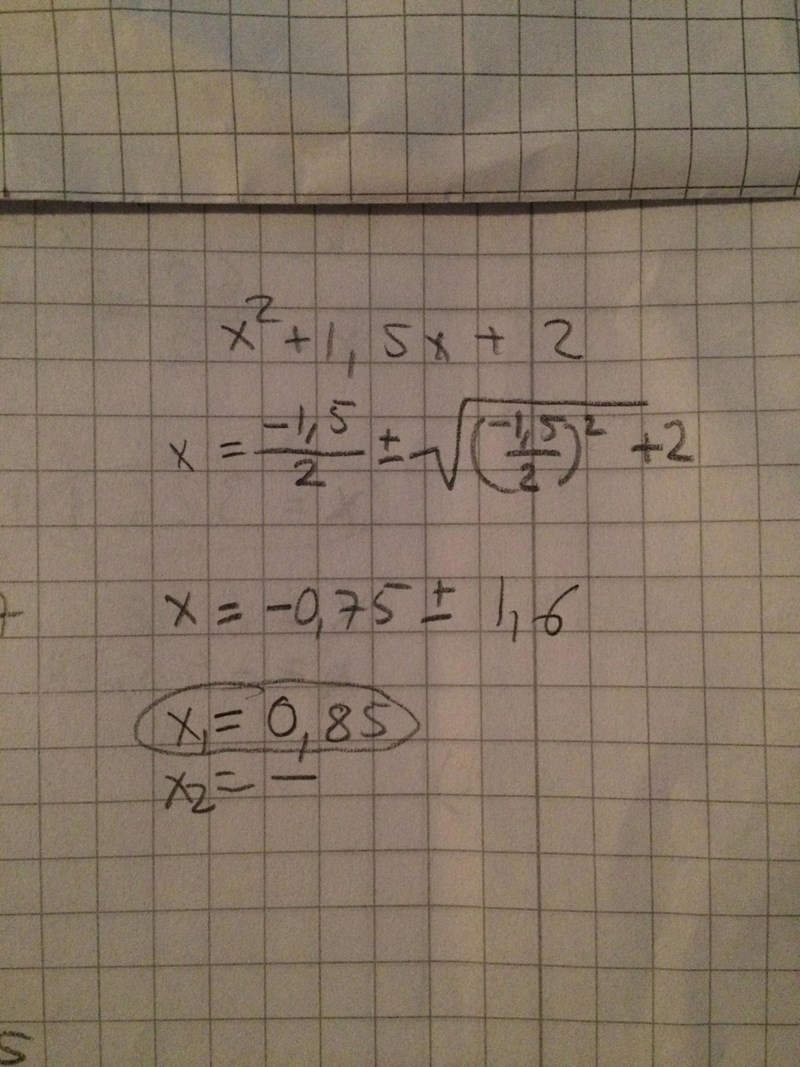 x² + 1,5x + 2
x = -1,5/2 ± √(-1,5/2)² + 2
x = -0,75 ± 1,6
x₁ = 0,85
x₂ = —